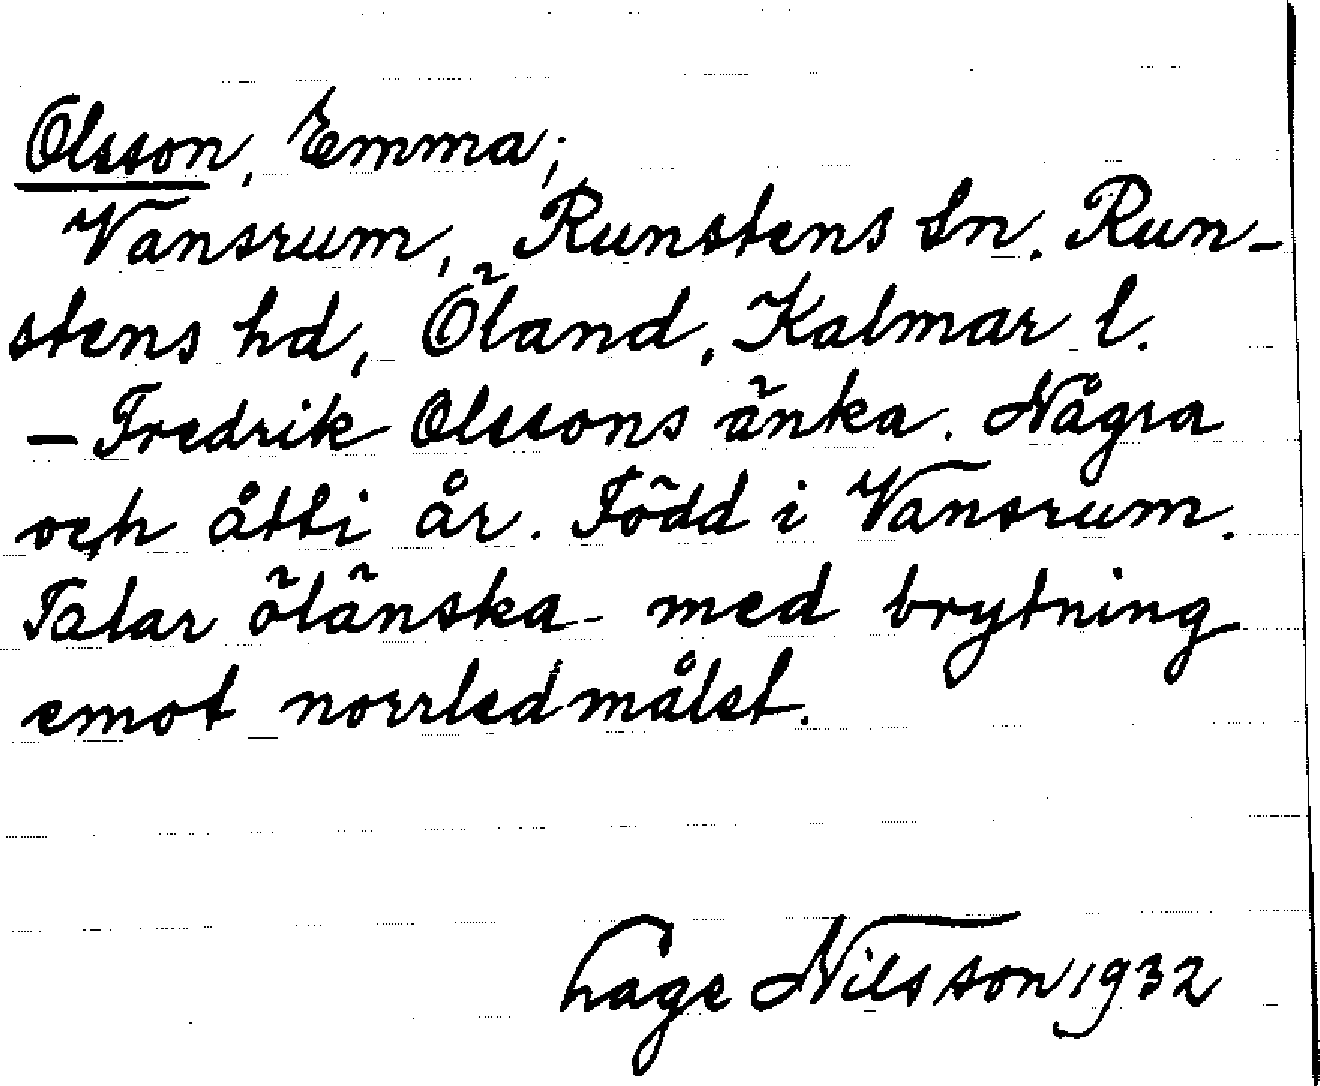 Olsson, Emma;
Vansrum, Runstens sn. Run-
stens hd, Öland, Kalmar l.
– Fredrik Olssons änka. Några
och åtti år. Född i Vansrum.
Talar öländska med brytning
emot norrledmålet.
Lage Nilsson 1932